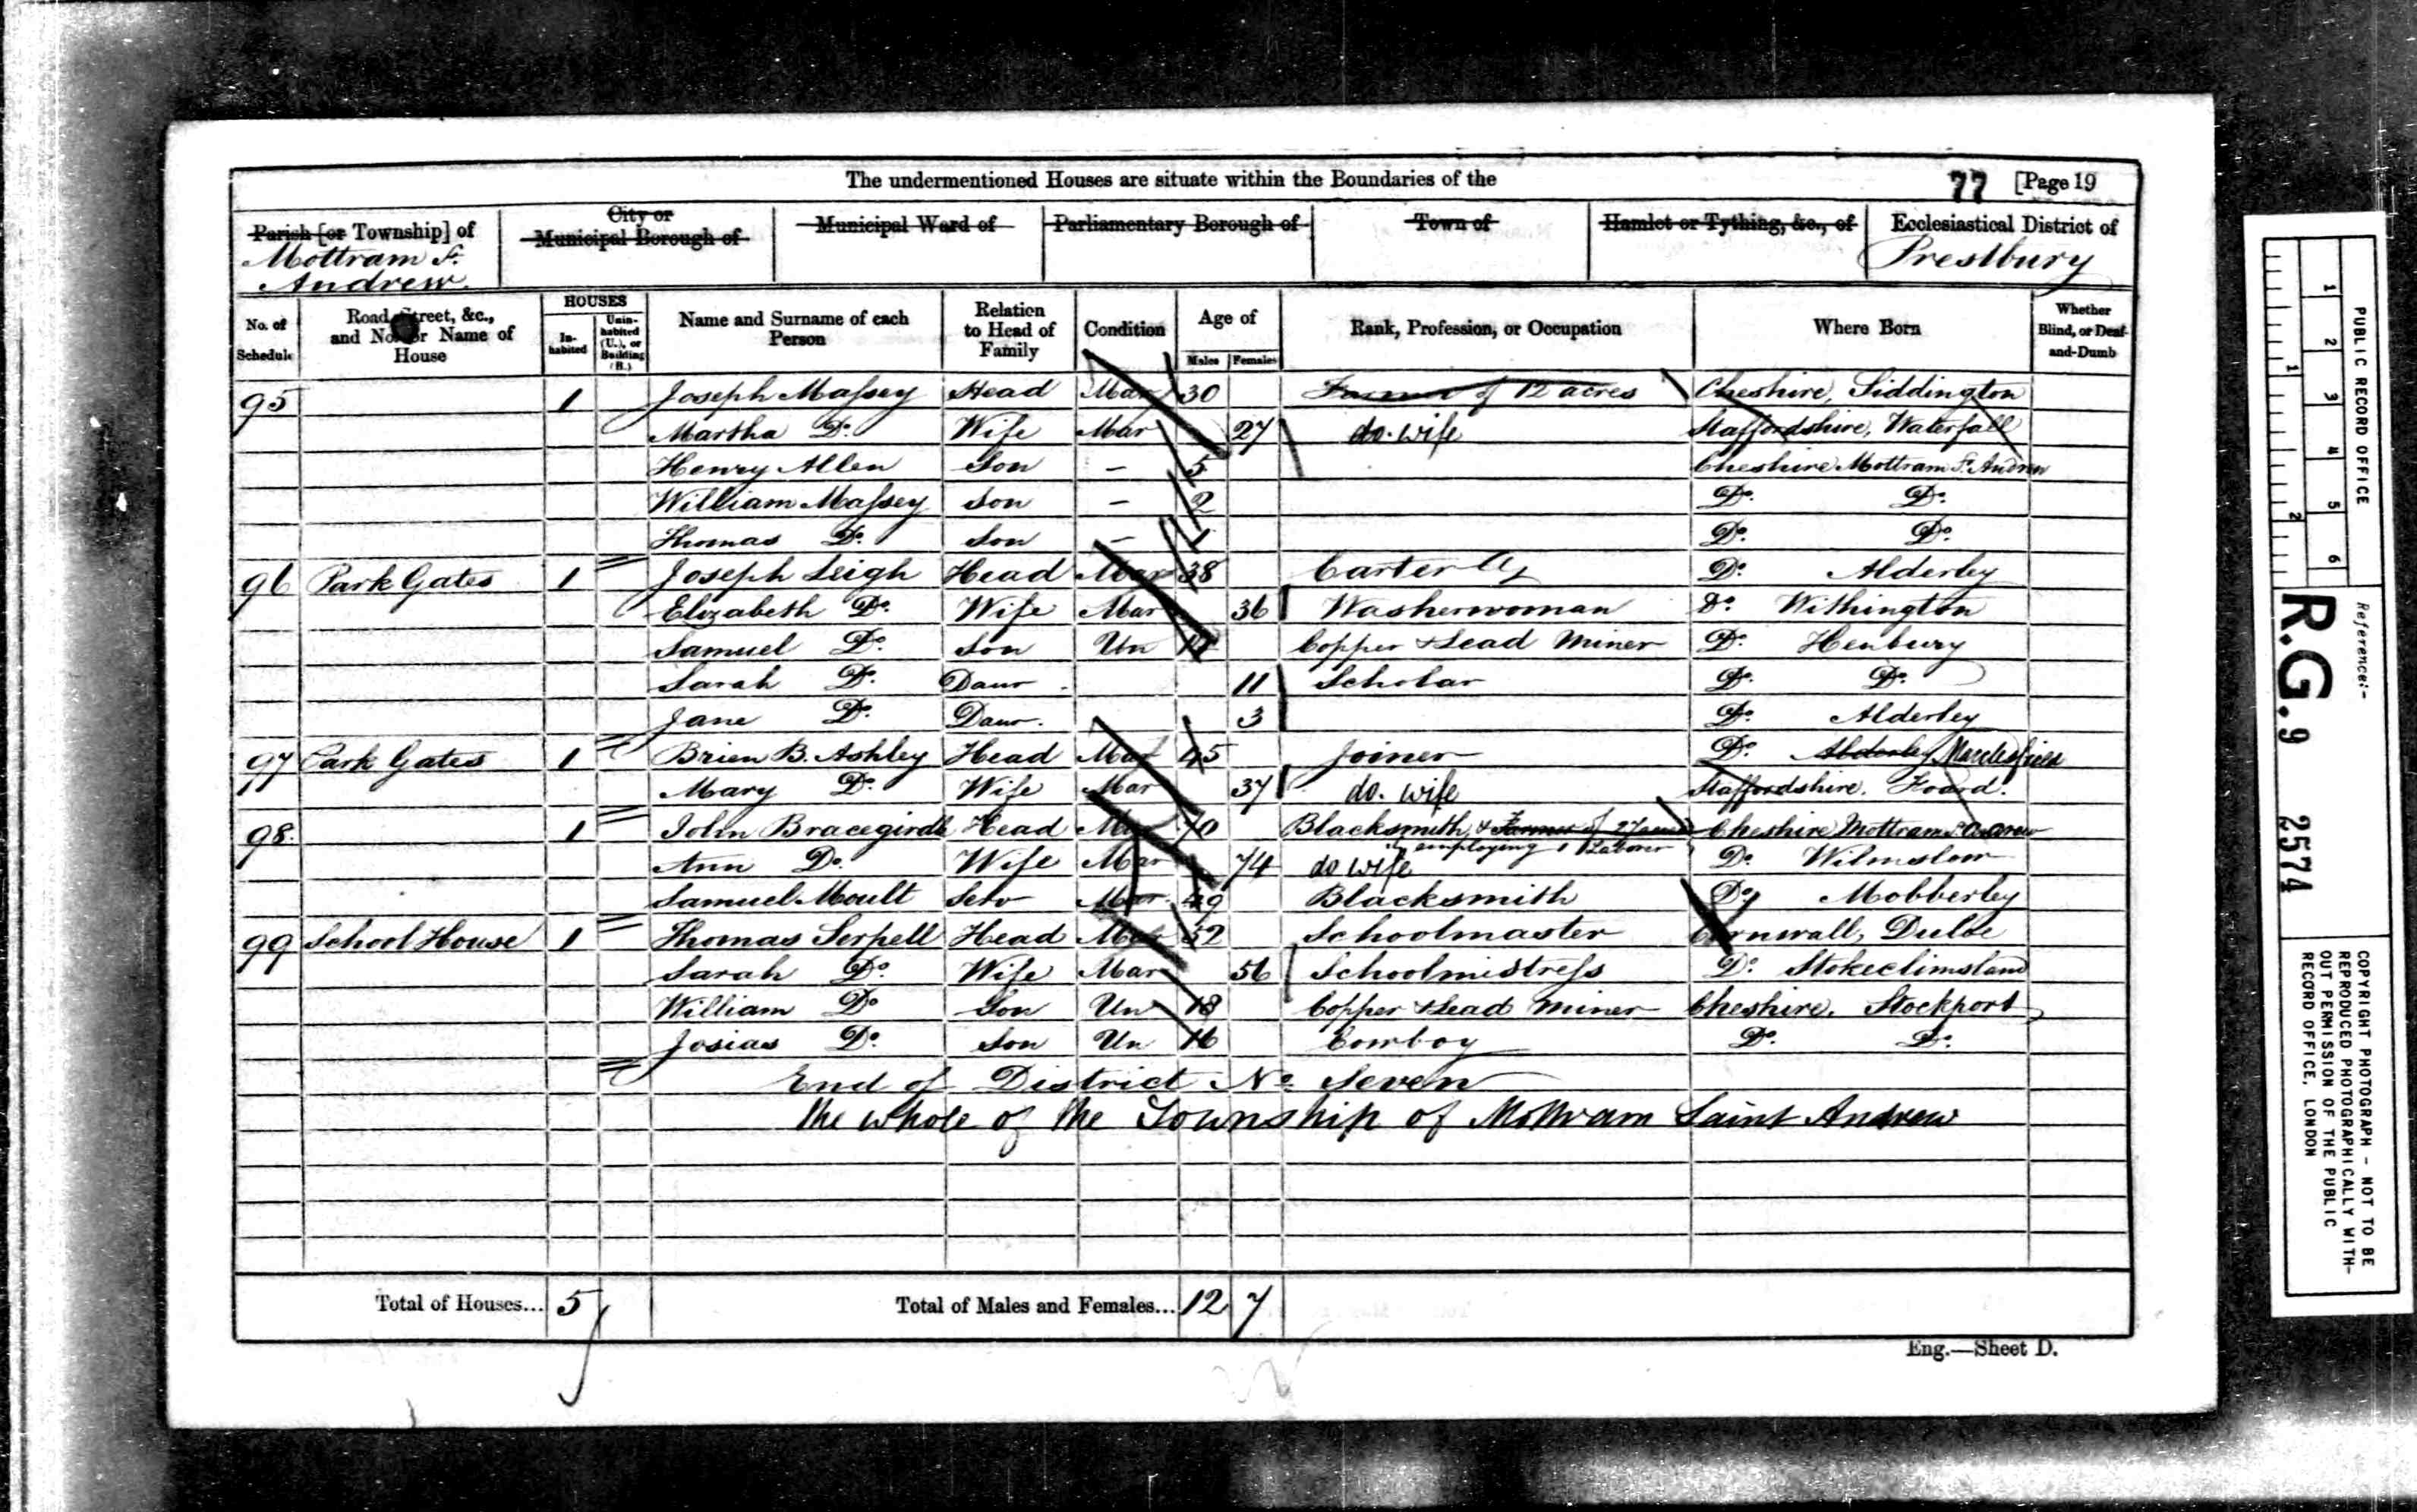 The undermentioned Houses are situate within the Boundaries of the
77 [Page 19
Parish [or Township] of
Mottram St.
Andrew
City or
Municipal Borough of
Municipal Ward of
Parliamentary Borough of
Town of
Hamlet or Tything, &c., of
Ecclesiastical District of
Prestbury
No. of Schedule
Road, Street, &c., and No. or Name of House
HOUSES
In-habited
Unin-habited (U.), or Building (B.)
Name and Surname of each Person
Relation to Head of Family
Condition
Age of
Males Females
Rank, Profession, or Occupation
Where Born
Whether Blind, or Deaf-and-Dumb
95 1 Joseph Massey Head Mar 30 Farmer of 12 acres Cheshire, Siddington
Martha Do. Wife Mar 27 do. wife Staffordshire, Waterfall
Henry Allen Son – 5 Cheshire Mottram St. Andrew
William Massey Son – 2 Do. Do.
Thomas Do. Son – 1 Do. Do.
96 Park Gates 1 Joseph Leigh Head Mar 38 Carter Do. Alderley
Elizabeth Do. Wife Mar 36 Washerwoman Do. Withington
Samuel Do. Son Un Copper & Lead Miner Do. Henbury
Sarah Do. Daur 11 Scholar Do. Do.
Jane Do. Daur. 3 Do. Alderley
97 Park Gates 1 Brien B. Ashley Head Mar 45 Joiner Do. Alderley Macclesfield
Mary Do. Wife Mar 37 do. wife Staffordshire.
98. 1 John Bracegirdle Head Mar 70 Blacksmith, & Farmer of 27 acres Cheshire Mottram St. Andrew
employing 1 Laborer
Ann Do. Wife Mar 74 do wife Do. Wilmslow
Samuel Moult Mar. 49 Blacksmith Do. Mobberley
99 School House 1 Thomas Serpell Head Mar Schoolmaster Cornwall, Duloe
Sarah Do. Wife Mar 56 Schoolmistress Do. Stokeclimsland
William Do Son Un 18 Copper & Lead Miner Cheshire. Stockport
Josias Do. Son Un 16 Cowboy Do. Do.
End of District No. Seven
The whole of the Township of Mottram Saint Andrew
Total of Houses... 5
Total of Males and Females... 12 7
Eng.—Sheet D.
PUBLIC RECORD OFFICE
1 2 3 4 5 6
1 2
Reference:-
R.G. 9 2574
COPYRIGHT PHOTOGRAPH - NOT TO BE
REPRODUCED PHOTOGRAPHICALLY WITH-
OUT PERMISSION OF THE PUBLIC
RECORD OFFICE, LONDON